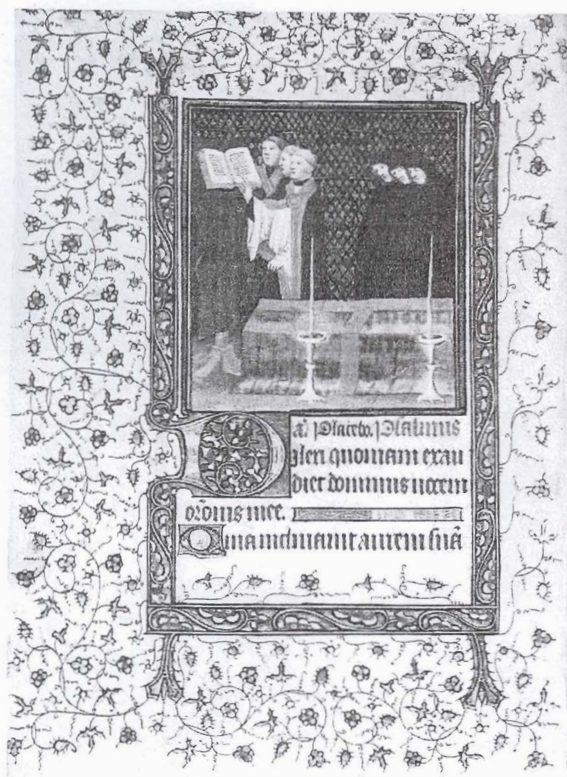 añ. Placebo. Psalmus
Dilexi quoniam exau
diet dominus uocem
orōnis mee.
Quia inclinauit aurem suā